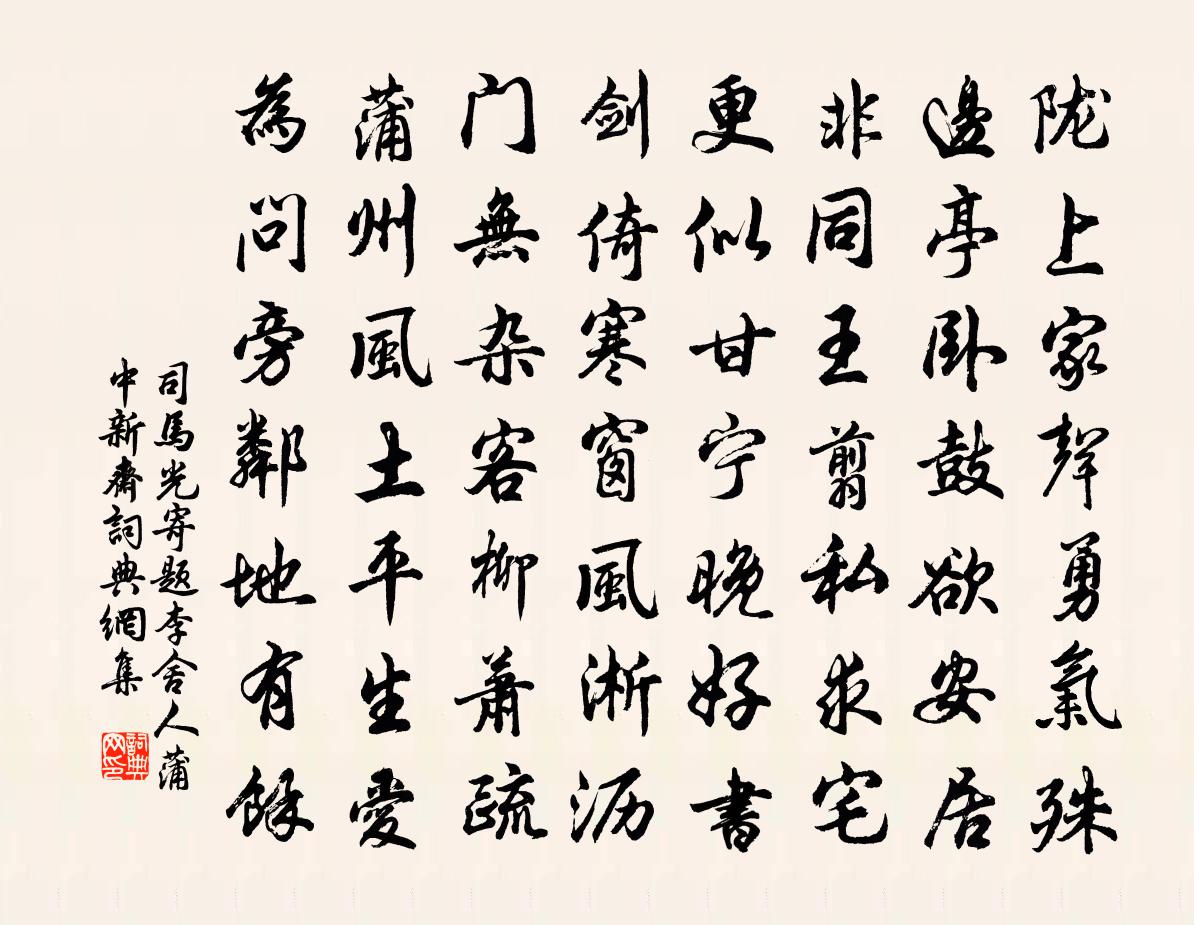 陇上家聲勇氣殊
邊亭卧鼓欲安居
非同王翦私求宅
更似甘宁晚好書
剑倚寒窗風淅沥
门無杂客柳萧疏
蒲州風土平生愛
為问旁鄰地有餘
司馬光寄题李舍人蒲
中新齋詞典網集
詞典
网印